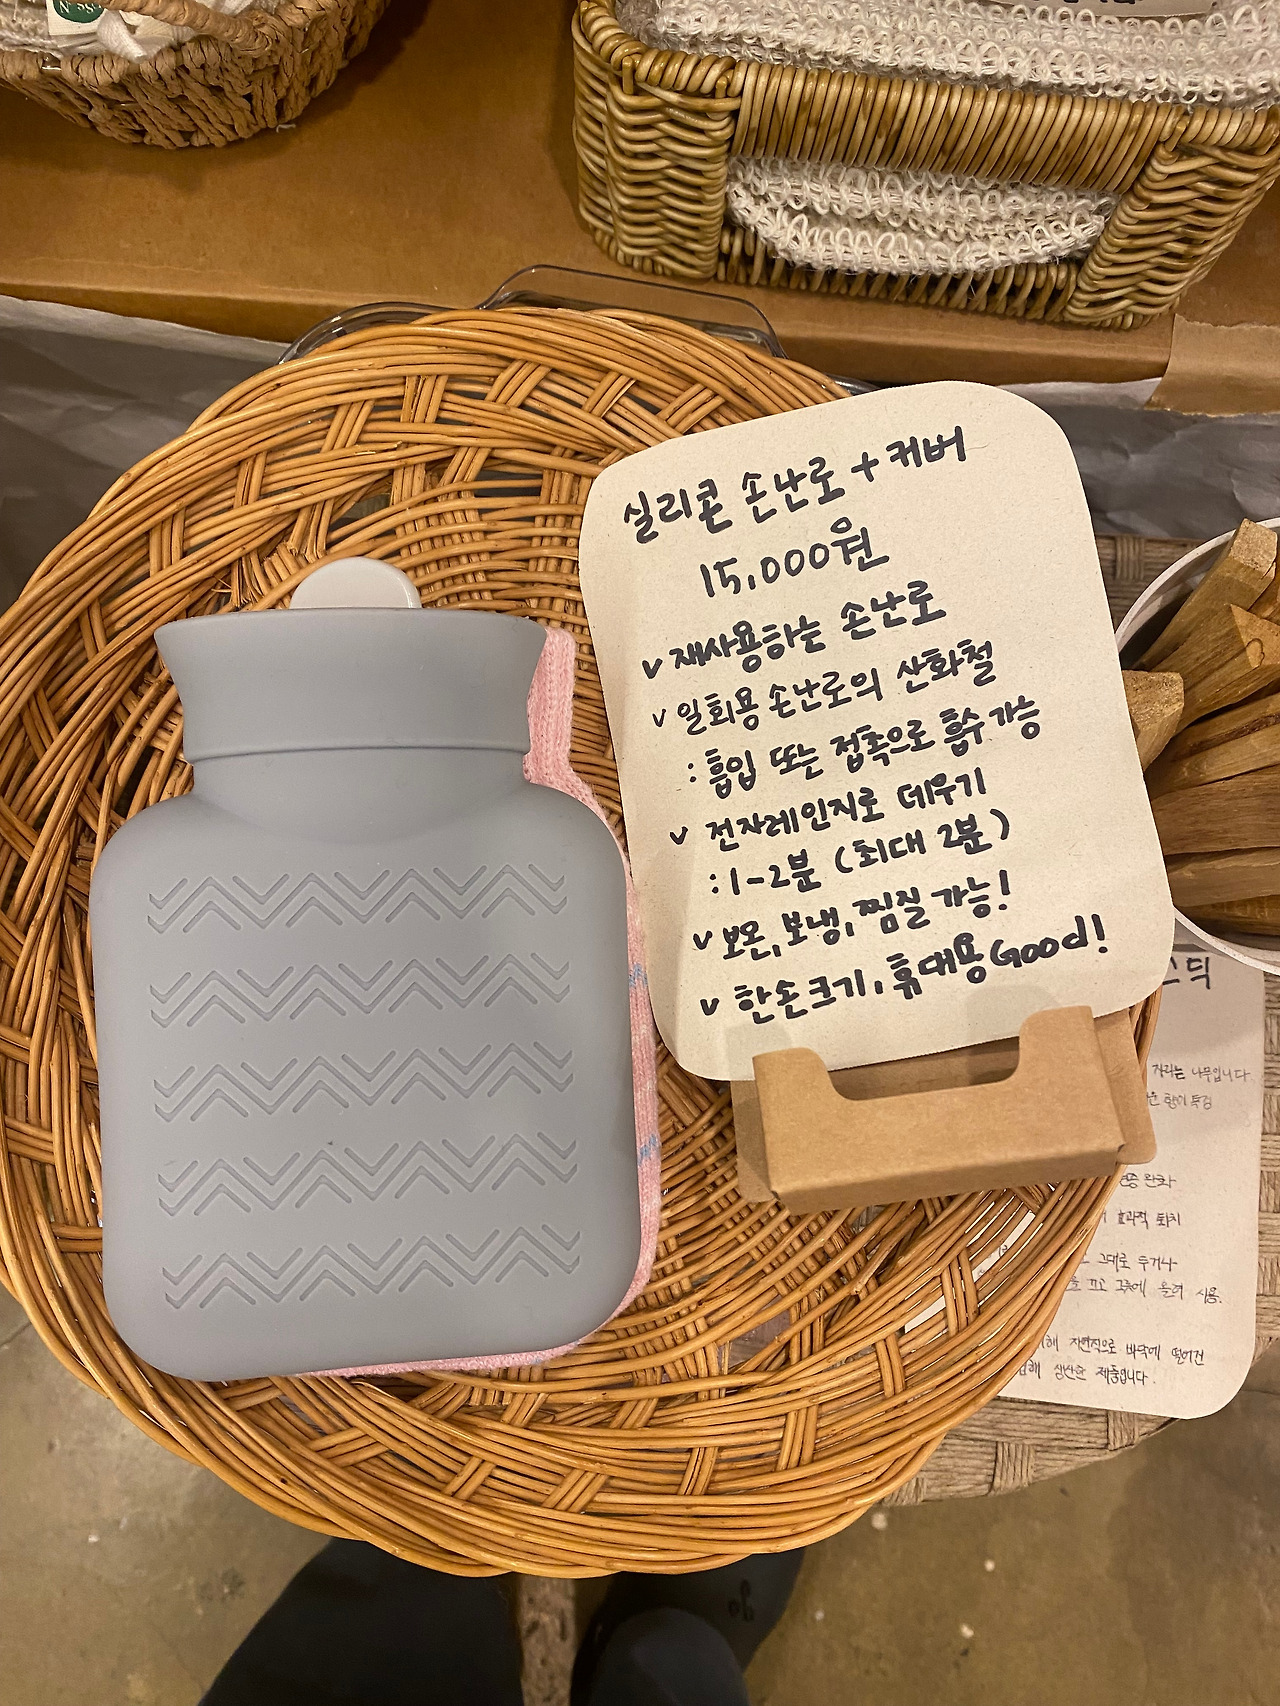 실리콘 손난로 + 커버
15,000원
v 재사용하는 손난로
v 일회용 손난로의 산화철
: 흡입 또는 접촉으로 흡수 가능
v 전자레인지로 데우기
: 1-2분 (최대 2분)
v 보온, 보냉, 찜질 가능!
v 한손크기, 휴대용 Good!
스틱
자라는 나무입니다
향이 특징
완화
효과적 퇴치
그대로 두거나
끄고 그릇에 올려 사용.
자연적으로 바닥에 떨어진
생산한 제품입니다.